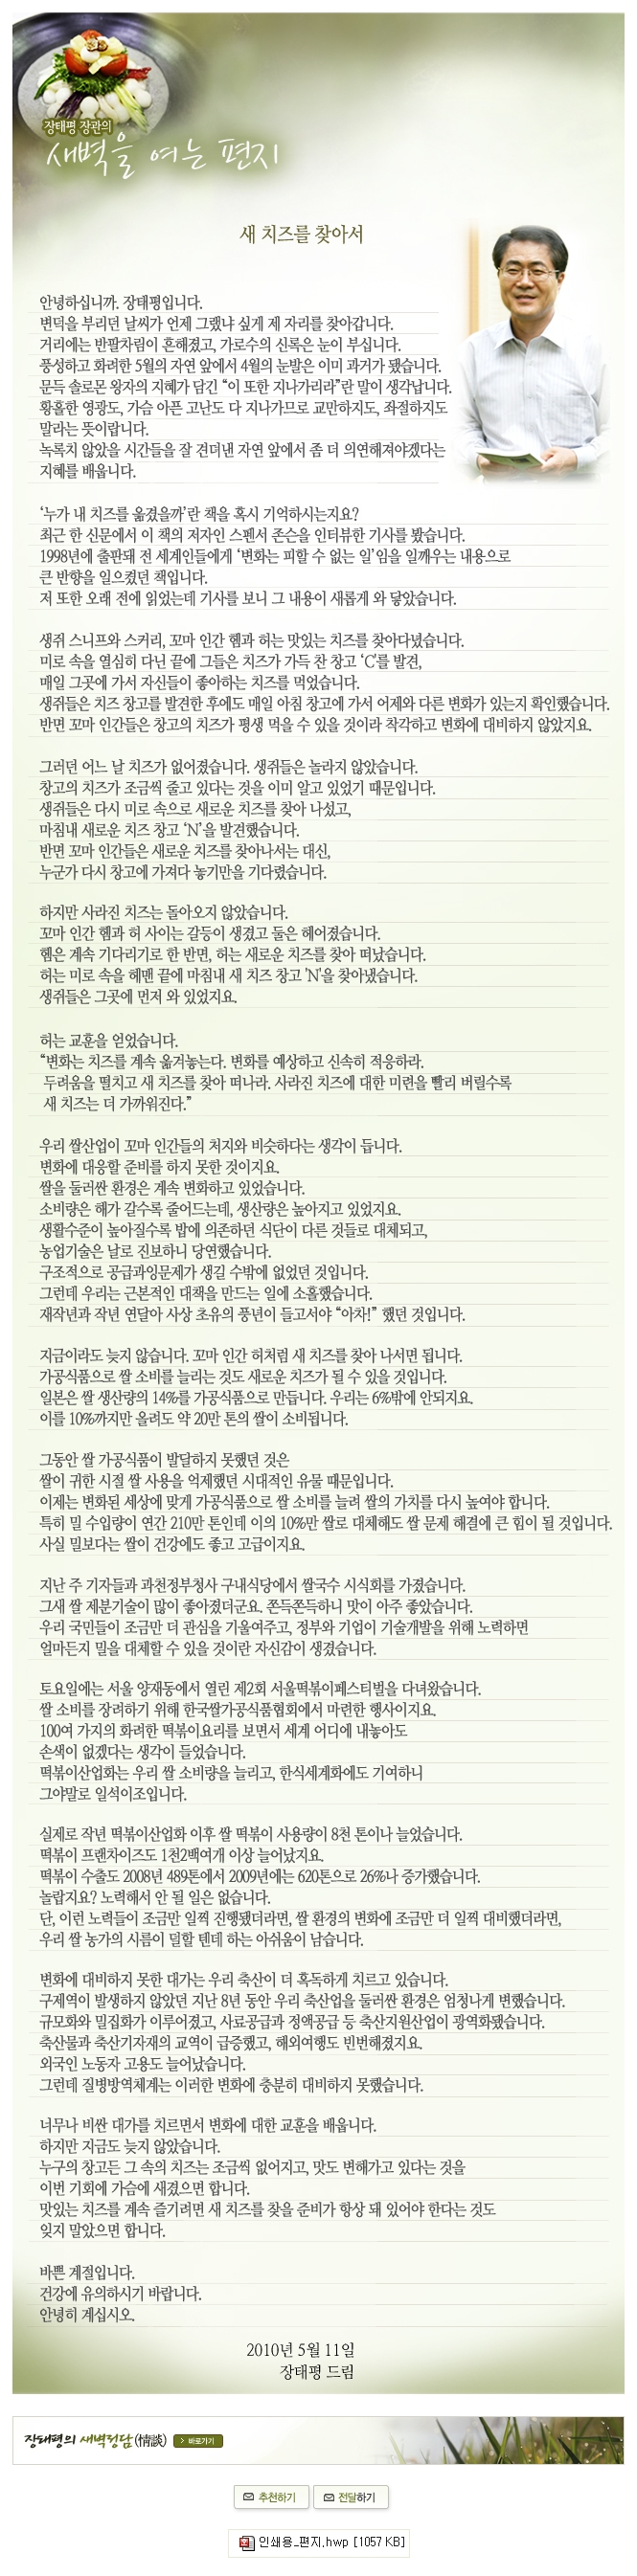 장태평 장관의
새벽을 여는 편지
새 치즈를 찾아서
안녕하십니까. 장태평입니다.
변덕을 부리던 날씨가 언제 그랬냐 싶게 제 자리를 찾아갑니다.
거리에는 반팔차림이 흔해졌고, 가로수의 신록은 눈이 부십니다.
풍성하고 화려한 5월의 자연 앞에서 4월의 눈발은 이미 과거가 됐습니다.
문득 솔로몬 왕자의 지혜가 담긴 “이 또한 지나가리라”란 말이 생각납니다.
황홀한 영광도, 가슴 아픈 고난도 다 지나가므로 교만하지도, 좌절하지도
말라는 뜻이랍니다.
녹록치 않았을 시간들을 잘 견뎌낸 자연 앞에서 좀 더 의연해져야겠다는
지혜를 배웁니다.
‘누가 내 치즈를 옮겼을까’란 책을 혹시 기억하시는지요?
최근 한 신문에서 이 책의 저자인 스펜서 존슨을 인터뷰한 기사를 봤습니다.
1998년에 출판돼 전 세계인들에게 ‘변화는 피할 수 없는 일’임을 일깨우는 내용으로
큰 반향을 일으켰던 책입니다.
저 또한 오래 전에 읽었는데 기사를 보니 그 내용이 새롭게 와 닿았습니다.
생쥐 스니프와 스커리, 꼬마 인간 헴과 허는 맛있는 치즈를 찾아다녔습니다.
미로 속을 열심히 다닌 끝에 그들은 치즈가 가득 찬 창고 ‘C’를 발견,
매일 그곳에 가서 자신들이 좋아하는 치즈를 먹었습니다.
생쥐들은 치즈 창고를 발견한 후에도 매일 아침 창고에 가서 어제와 다른 변화가 있는지 확인했습니다.
반면 꼬마 인간들은 창고의 치즈가 평생 먹을 수 있을 것이라 착각하고 변화에 대비하지 않았지요.
그러던 어느 날 치즈가 없어졌습니다. 생쥐들은 놀라지 않았습니다.
창고의 치즈가 조금씩 줄고 있다는 것을 이미 알고 있었기 때문입니다.
생쥐들은 다시 미로 속으로 새로운 치즈를 찾아 나섰고,
마침내 새로운 치즈 창고 ‘N’을 발견했습니다.
반면 꼬마 인간들은 새로운 치즈를 찾아나서는 대신,
누군가 다시 창고에 가져다 놓기만을 기다렸습니다.
하지만 사라진 치즈는 돌아오지 않았습니다.
꼬마 인간 헴과 허 사이는 갈등이 생겼고 둘은 헤어졌습니다.
헴은 계속 기다리기로 한 반면, 허는 새로운 치즈를 찾아 떠났습니다.
허는 미로 속을 헤맨 끝에 마침내 새 치즈 창고 'N'을 찾아냈습니다.
생쥐들은 그곳에 먼저 와 있었지요.
허는 교훈을 얻었습니다.
“변화는 치즈를 계속 옮겨놓는다. 변화를 예상하고 신속히 적응하라.
두려움을 떨치고 새 치즈를 찾아 떠나라. 사라진 치즈에 대한 미련을 빨리 버릴수록
새 치즈는 더 가까워진다.”
우리 쌀산업이 꼬마 인간들의 처지와 비슷하다는 생각이 듭니다.
변화에 대응할 준비를 하지 못한 것이지요.
쌀을 둘러싼 환경은 계속 변화하고 있었습니다.
소비량은 해가 갈수록 줄어드는데, 생산량은 높아지고 있었지요.
생활수준이 높아질수록 밥에 의존하던 식단이 다른 것들로 대체되고,
농업기술은 날로 진보하니 당연했습니다.
구조적으로 공급과잉문제가 생길 수밖에 없었던 것입니다.
그런데 우리는 근본적인 대책을 만드는 일에 소홀했습니다.
재작년과 작년 연달아 사상 초유의 풍년이 들고서야 “아차!” 했던 것입니다.
지금이라도 늦지 않습니다. 꼬마 인간 허처럼 새 치즈를 찾아 나서면 됩니다.
가공식품으로 쌀 소비를 늘리는 것도 새로운 치즈가 될 수 있을 것입니다.
일본은 쌀 생산량의 14%를 가공식품으로 만듭니다. 우리는 6%밖에 안되지요.
이를 10%까지만 올려도 약 20만 톤의 쌀이 소비됩니다.
그동안 쌀 가공식품이 발달하지 못했던 것은
쌀이 귀한 시절 쌀 사용을 억제했던 시대적인 유물 때문입니다.
이제는 변화된 세상에 맞게 가공식품으로 쌀 소비를 늘려 쌀의 가치를 다시 높여야 합니다.
특히 밀 수입량이 연간 210만 톤인데 이의 10%만 쌀로 대체해도 쌀 문제 해결에 큰 힘이 될 것입니다.
사실 밀보다는 쌀이 건강에도 좋고 고급이지요.
지난 주 기자들과 과천정부청사 구내식당에서 쌀국수 시식회를 가졌습니다.
그새 쌀 제분기술이 많이 좋아졌더군요. 쫀득쫀득하니 맛이 아주 좋았습니다.
우리 국민들이 조금만 더 관심을 기울여주고, 정부와 기업이 기술개발을 위해 노력하면
얼마든지 밀을 대체할 수 있을 것이란 자신감이 생겼습니다.
토요일에는 서울 양재동에서 열린 제2회 서울떡볶이페스티벌을 다녀왔습니다.
쌀 소비를 장려하기 위해 한국쌀가공식품협회에서 마련한 행사이지요.
100여 가지의 화려한 떡볶이요리를 보면서 세계 어디에 내놓아도
손색이 없겠다는 생각이 들었습니다.
떡볶이산업화는 우리 쌀 소비량을 늘리고, 한식세계화에도 기여하니
그야말로 일석이조입니다.
실제로 작년 떡볶이산업화 이후 쌀 떡볶이 사용량이 8천 톤이나 늘었습니다.
떡볶이 프랜차이즈도 1천2백여개 이상 늘어났지요.
떡볶이 수출도 2008년 489톤에서 2009년에는 620톤으로 26%나 증가했습니다.
놀랍지요? 노력해서 안 될 일은 없습니다.
단, 이런 노력들이 조금만 일찍 진행됐더라면, 쌀 환경의 변화에 조금만 더 일찍 대비했더라면,
우리 쌀 농가의 시름이 덜할 텐데 하는 아쉬움이 남습니다.
변화에 대비하지 못한 대가는 우리 축산이 더 혹독하게 치르고 있습니다.
구제역이 발생하지 않았던 지난 8년 동안 우리 축산업을 둘러싼 환경은 엄청나게 변했습니다.
규모화와 밀집화가 이루어졌고, 사료공급과 정액공급 등 축산지원산업이 광역화됐습니다.
축산물과 축산기자재의 교역이 급증했고, 해외여행도 빈번해졌지요.
외국인 노동자 고용도 늘어났습니다.
그런데 질병방역체계는 이러한 변화에 충분히 대비하지 못했습니다.
너무나 비싼 대가를 치르면서 변화에 대한 교훈을 배웁니다.
하지만 지금도 늦지 않았습니다.
누구의 창고든 그 속의 치즈는 조금씩 없어지고, 맛도 변해가고 있다는 것을
이번 기회에 가슴에 새겼으면 합니다.
맛있는 치즈를 계속 즐기려면 새 치즈를 찾을 준비가 항상 돼 있어야 한다는 것도
잊지 말았으면 합니다.
바쁜 계절입니다.
건강에 유의하시기 바랍니다.
안녕히 계십시오.
2010년 5월 11일
장태평 드림
장태평의 새벽정담(情談) > 바로가기
추천하기 전달하기
인쇄용_편지.hwp [1057 KB]